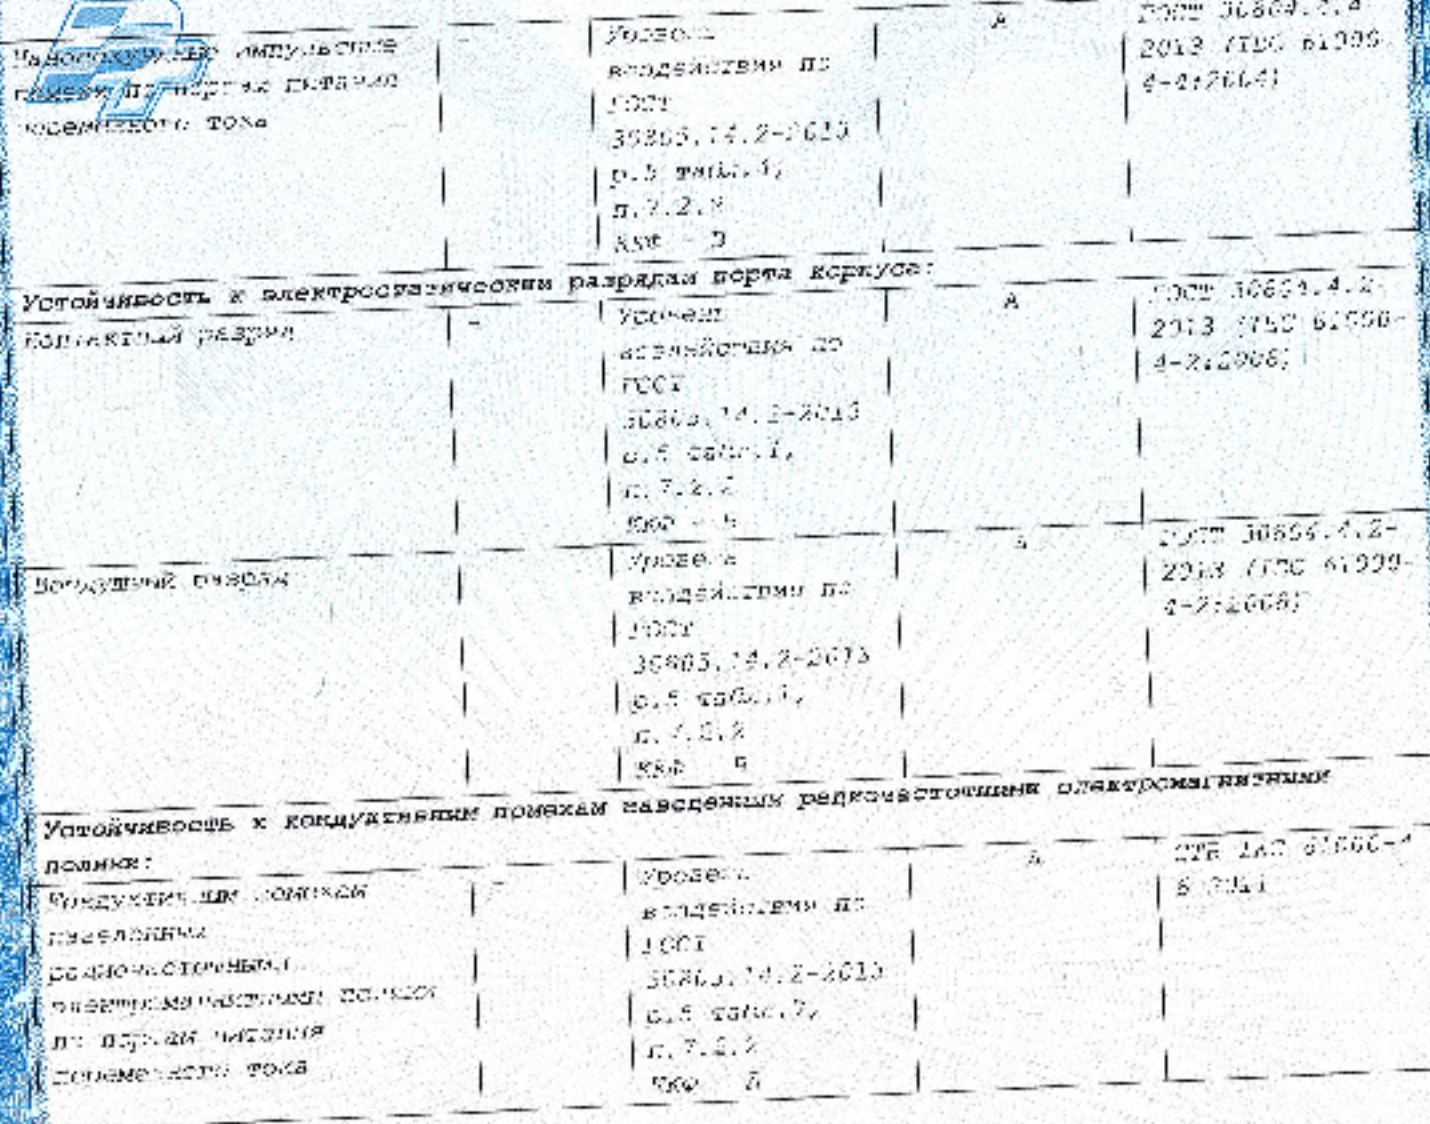 Наносекундные импульсные
помехи по портам питания
переменного тока
-
Уровень
воздействия по
ГОСТ
30805.14.2-2013
р.5 табл.
п.7.2.2
ККФ - В
А
ГОСТ 30804.4.4
2013 (IEC 61000-
4-4:2004)
Устойчивость к электростатическим разрядам порта корпуса:
Контактный разряд
-
Уровень
воздействия по
ГОСТ
30805.14.2-2013
р.5 табл.1,
п.7.2.2
ККФ - Б
А
ГОСТ 30804.4.2-
2013 (IEC 61000-
4-2:2008)
Воздушный разряд
Уровень
воздействия по
ГОСТ
30805.14.2-2013
р.5 табл.1,
п.7.2.2
ККФ
ГОСТ 30804.4.2-
2013 (IEC 61000-
4-2:2008)
Устойчивость к кондуктивным помехам наведенным радиочастотными электромагнитными
полями:
Кондуктивным помехам
наведенных
радиочастотными
электромагнитными полями
по портам питания
переменного тока
Уровень
воздействия по
ГОСТ
30805.14.2-2013
р.5
п.7.2.2
ККФ
А
СТБ IEC 61000-4
6-2011